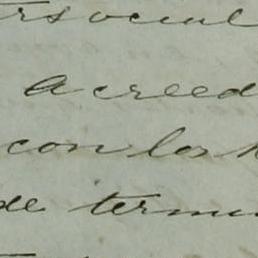 rsocial
acreed
con los h
de termin